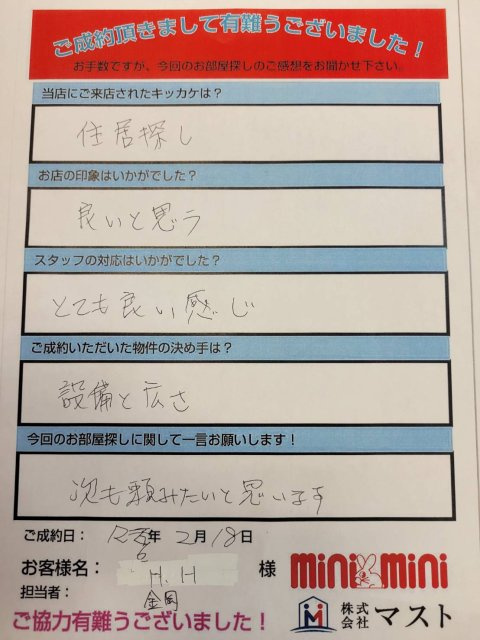 ご成約頂きまして有難うございました！
お手数ですが、今回のお部屋探しのご感想をお聞かせ下さい。
当店にご来店されたキッカケは？
住居探し
お店の印象はいかがでした？
良いと思う
スタッフの対応はいかがでした？
とても良い感じ
ご成約いただいた物件の決め手は？
設備と広さ
今回のお部屋探しに関して一言お願いします！
次も頼みたいと思います
ご成約日： 年 2月18日
お客様名： H.H 様
担当者： 金岡
mini mini
株式会社 マスト
ご協力有難うございました！